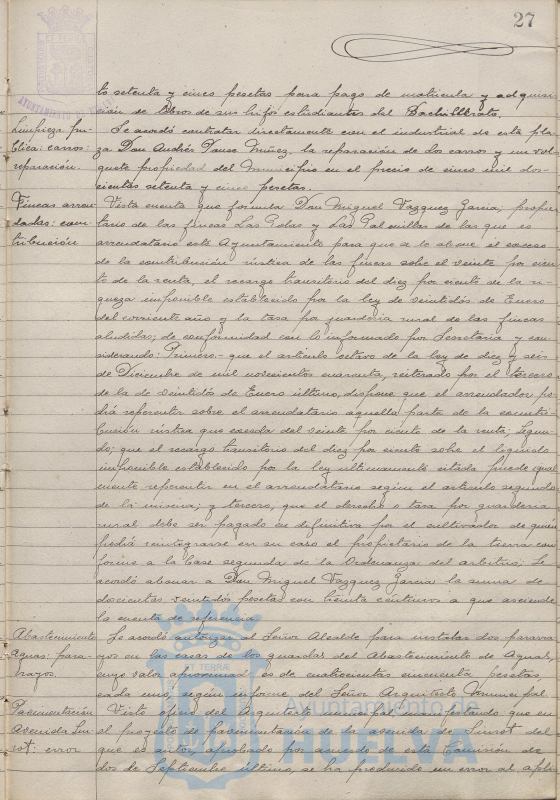 27
to setenta y cinco pesetas para pago de matricula y adquisi-
ción de libros de sus hijos estudiantes del Bachillerato.
Limpieza pú-
blica: carros:
reparación.
Se acordó contratar directamente con el industrial de esta pla-
za Don Andrés Ponce Muñez, la reparación de dos carros y un vol-
quete propiedad del Municipio en el precio de cinco mil dos-
cientas setenta y cinco pesetas.
Fincas arren-
dadas: con-
tribución
Vista cuenta que formula Don Miguel Vazquez Garcia, propie-
tario de las fincas Las Polas y Las Palmillas de las que es
arrendatario este Ayuntamiento para que se le abone el exceso
de la contribución rústica de las fincas sobre el veinte por cien-
to de la renta, el recargo transitorio del diez por ciento de la ri-
queza imponible establecido por la ley de veintidós de Enero
del corriente año y la tasa por guarderia rural de las fincas
aludidas; de conformidad con lo informado por Secretaria y con-
siderando: Primero.- que el articulo octavo de la ley de diez y seis
de Diciembre de mil novecientos cuarenta, reiterado por el tercero
de la de veintidós de Enero último, dispone que el arrendador po-
drá repercutir sobre el arrendatario aquella parte de la contri-
bución rústica que exceda del veinte por ciento de la renta; Segun-
do; que el recargo transitorio del diez por ciento sobre el liquido
imponible establecido por la ley ultimamente citada puede igual-
mente repercutir en el arrendatario según el articulo segundo
de la misma; y tercero, que el derecho o tasa por guarderia
rural debe ser pagado en definitiva por el cultivador de quien
podrá reintegrarse en su caso el propietario de la tierra con-
forme a la base segunda de la Ordenanza del arbitrio; Se
acordó abonar a Don Miguel Vazquez Garcia la suma de
doscientas veintidós pesetas con treinta céntimos a que asciende
la cuenta de referencia.
Abastecimiento
aguas: para-
rayos.
Se acordó autorizar al Señor Alcalde para instalar dos pararra-
yos en las casas de los guardas del Abastecimiento de Aguas,
cuyo valor aproximado es de cuatrocientas cincuenta pesetas,
cada uno, según informe del Señor Arquitecto Municipal.
Pavimentación
Avenida Sun-
: error
Visto oficio del Arquitecto municipal manifestando que en
el proyecto de pavimentación de la avenida de del
que es autor, aprobado por acuerdo de esta Comisión de
dos de Septiembre último, se ha producido un error al apli-
Ayuntamiento de
HUELVA